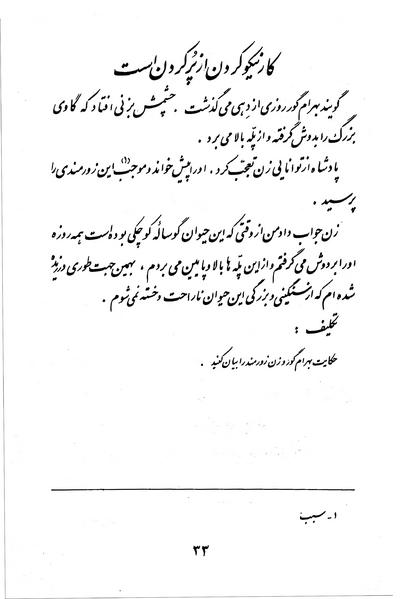 کار نیکو کردن از پر کردن است
گویند بهرام گور روزی از دهی می گذشت . چشمش بزنی افتاد که گاوی
بزرگ را بدوش گرفته و از پله بالا می برد .
پادشاه از توانایی زن تعجب کرد . او را پیش خواند و موجب (۱) این زورمندی را
پرسید .
زن جواب داد من از وقتی که این حیوان گوساله کوچکی بوده است همه روزه
او را بر دوش می گرفتم و از این پله ها بالا و پایین می بردم ، بهمین جهت طوری ورزیده
شده ام که از سنگینی و بزرگی این حیوان ناراحت و خسته نمی شوم .
تکلیف :
حکایت بهرام گور و زن زورمند را بیان کنید .
۱ - سبب
۳۳